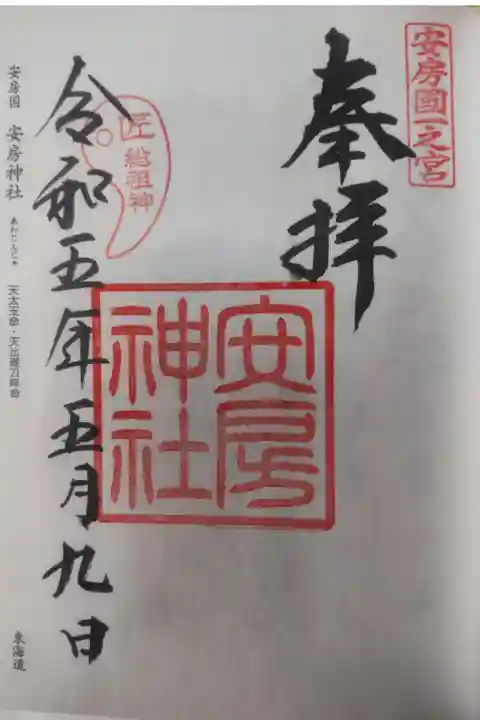 安房國一之宮
奉拝
安房
神社
匠総祖神
令和五年五月九日
安房国 安房神社 あわじんじゃ 天太玉命・天比理刀咩命
東海道